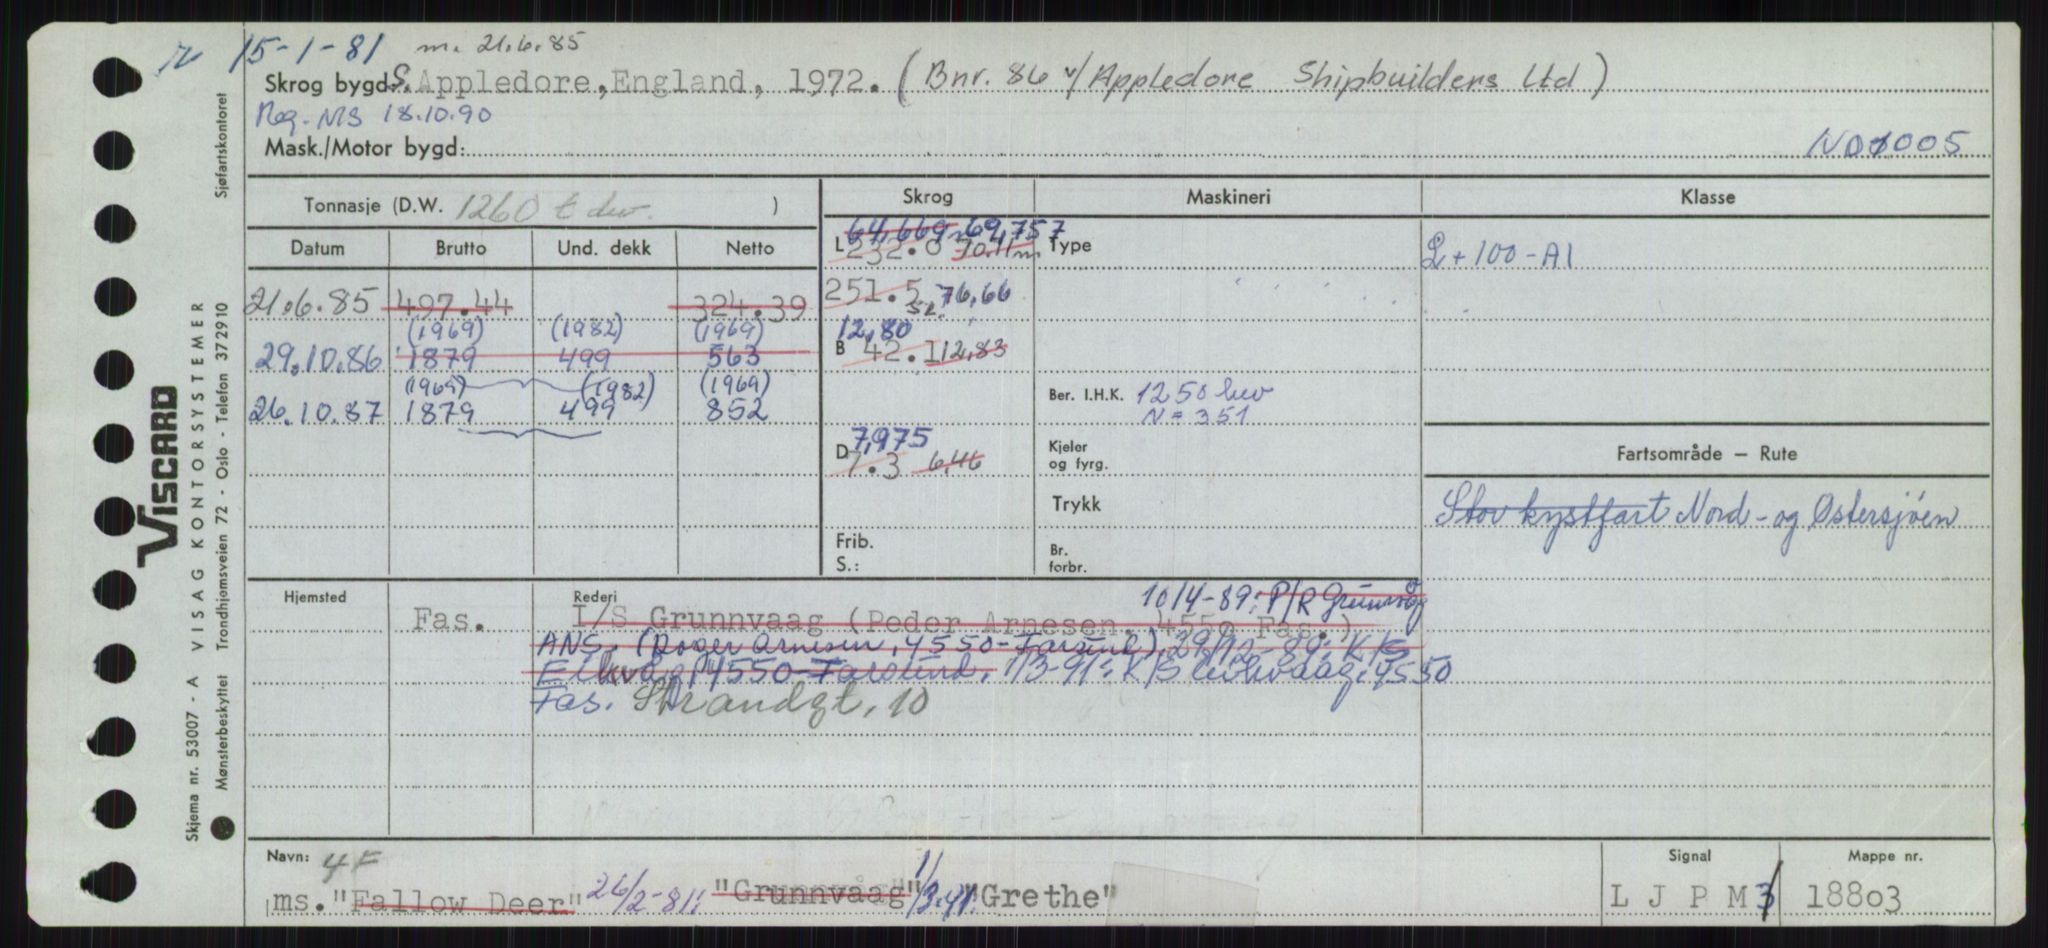 15-1-81 m. 21.6.85
Skrog bygd: S. Appledore, England, 1972. (Bnr. 86 v/Appledore Shipbuilders Ltd)
Reg. NIS 18.10.90
Mask./Motor bygd: N01005
Tonnasje (D.W. 1260 t dw. )
Skrog Maskineri Klasse
Datum Brutto Und. dekk Netto
64,669 69,757
L 232.0 70.11m Type £+100-A1
21.6.85 497.44 324.39 251.5 76,66
(1969) (1982) (1969) 12,80
29.10.86 1879 499 563 B 42.1 12,83
(1969) (1982) (1969)
26.10.87 1879 499 852
Ber. I.H.K. 1250 bhv
N = 351
D 7,975
7.3 6,46
Kjeler og fyrg.
Trykk
Fartsområde – Rute
Stor kystfart Nord- og Østersjøen
Frib.
S.:
Br. forbr.
Hjemsted Rederi
10/4-89: P/R Grunnvåg
Fas. I/S Grunnvaag (Peder Arnesen, 4550 Fas.)
ANS. (Roger Arnesen, 4550-Farsund). 29/12-89: K/S
Eikvåg, 4550-Farsund. 1/3-91: K/S Eikvaag, 4550
Fas. Strandgt. 10
Navn: 4F Signal Mappe nr.
ms. "Fallow Deer" 26/2-81: "Grunnvåag" 1/3-91: "Grethe" L J P M 3 18803
VISCARD
Skjema nr. 53007 - A VISAG KONTORSYSTEMER
Mønsterbeskyttet Trondhjemsveien 72 - Oslo - Telefon 372910 Sjøfartskontoret